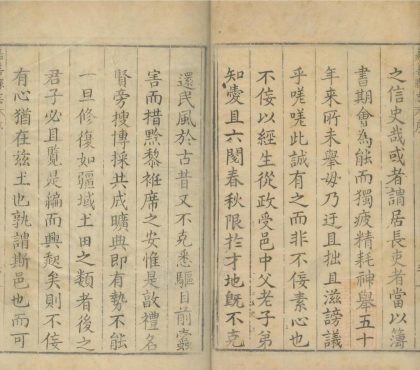 之信史哉或者謂居長吏者當以簿
書期會為能而獨疲精耗神舉五十
年來所未舉毋乃迂且拙且滋謗議
乎嗟嗟此誠有之而非不佞素心也
不佞以經生從政受邑中父老子弟
知愛且六閱春秋限於才地既不克
還民風於古昔又不克悉驅目前蠹
害而措黔黎袵席之安惟是敦禮名
賢旁搜博採共成曠典即有勢不能
一旦修復如疆域土田之類者後之
君子必且覽是編而興起矣則不佞
有心猶在茲土也孰謂斯邑也而可